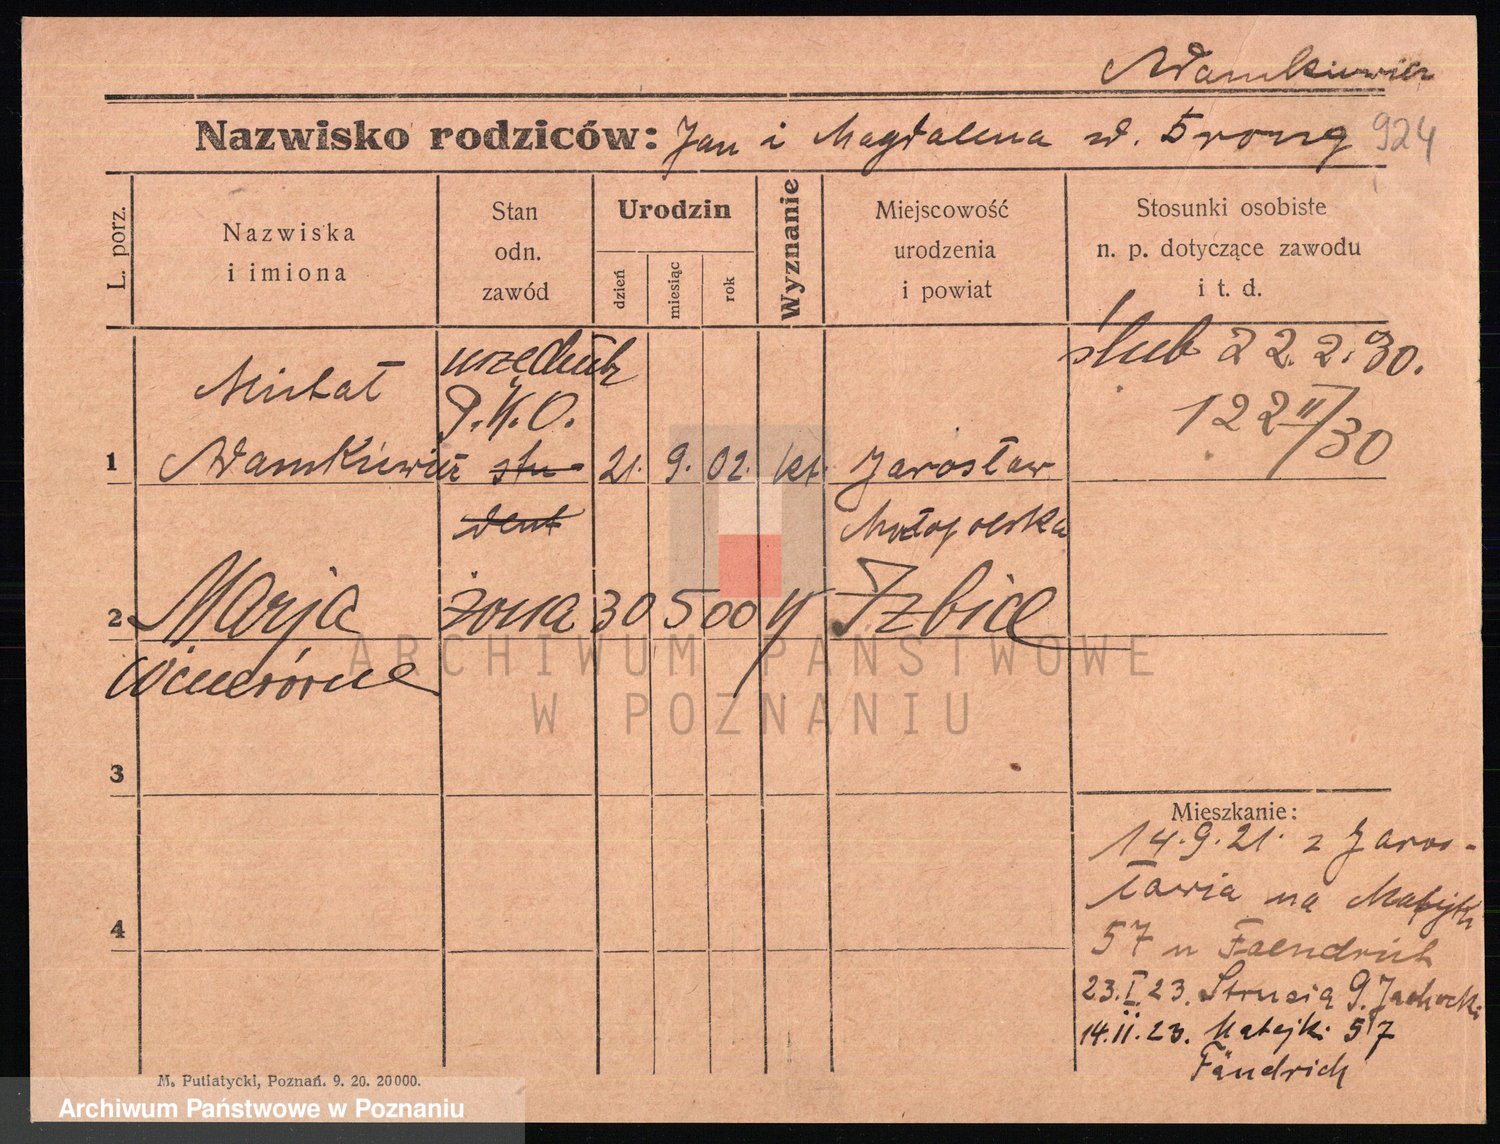 Adamkiewicz
Nazwisko rodziców: Jan i Magdalena zd. Srong 924
L. porz.
Nazwiska
i imiona
Stan
odn.
zawód
Urodzin
dzień
miesiąc
rok
Wyznanie
Miejscowość
urodzenia
i powiat
Stosunki osobiste
n. p. dotyczące zawodu
i t. d.
1
Michał
Adamkiewicz
urzędnik
P.K.O.
stu-
dent
21. 9. 02. kt.
Jarosław
Małopolska
ślub 22.2.30.
122 II/30
2
Marja
żona 30 5 00 "
Izbica
3
4
Mieszkanie:
14.9.21. z Jaros-
ławia na Matejki
57 u Faendrich
23.I.23. Strusia 9.
14.II.23. Matejki 57
Fändrich
M. Putiatycki, Poznań. 9. 20. 20000.
ARCHIWUM PAŃSTWOWE
W POZNANIU
Archiwum Państwowe w Poznaniu